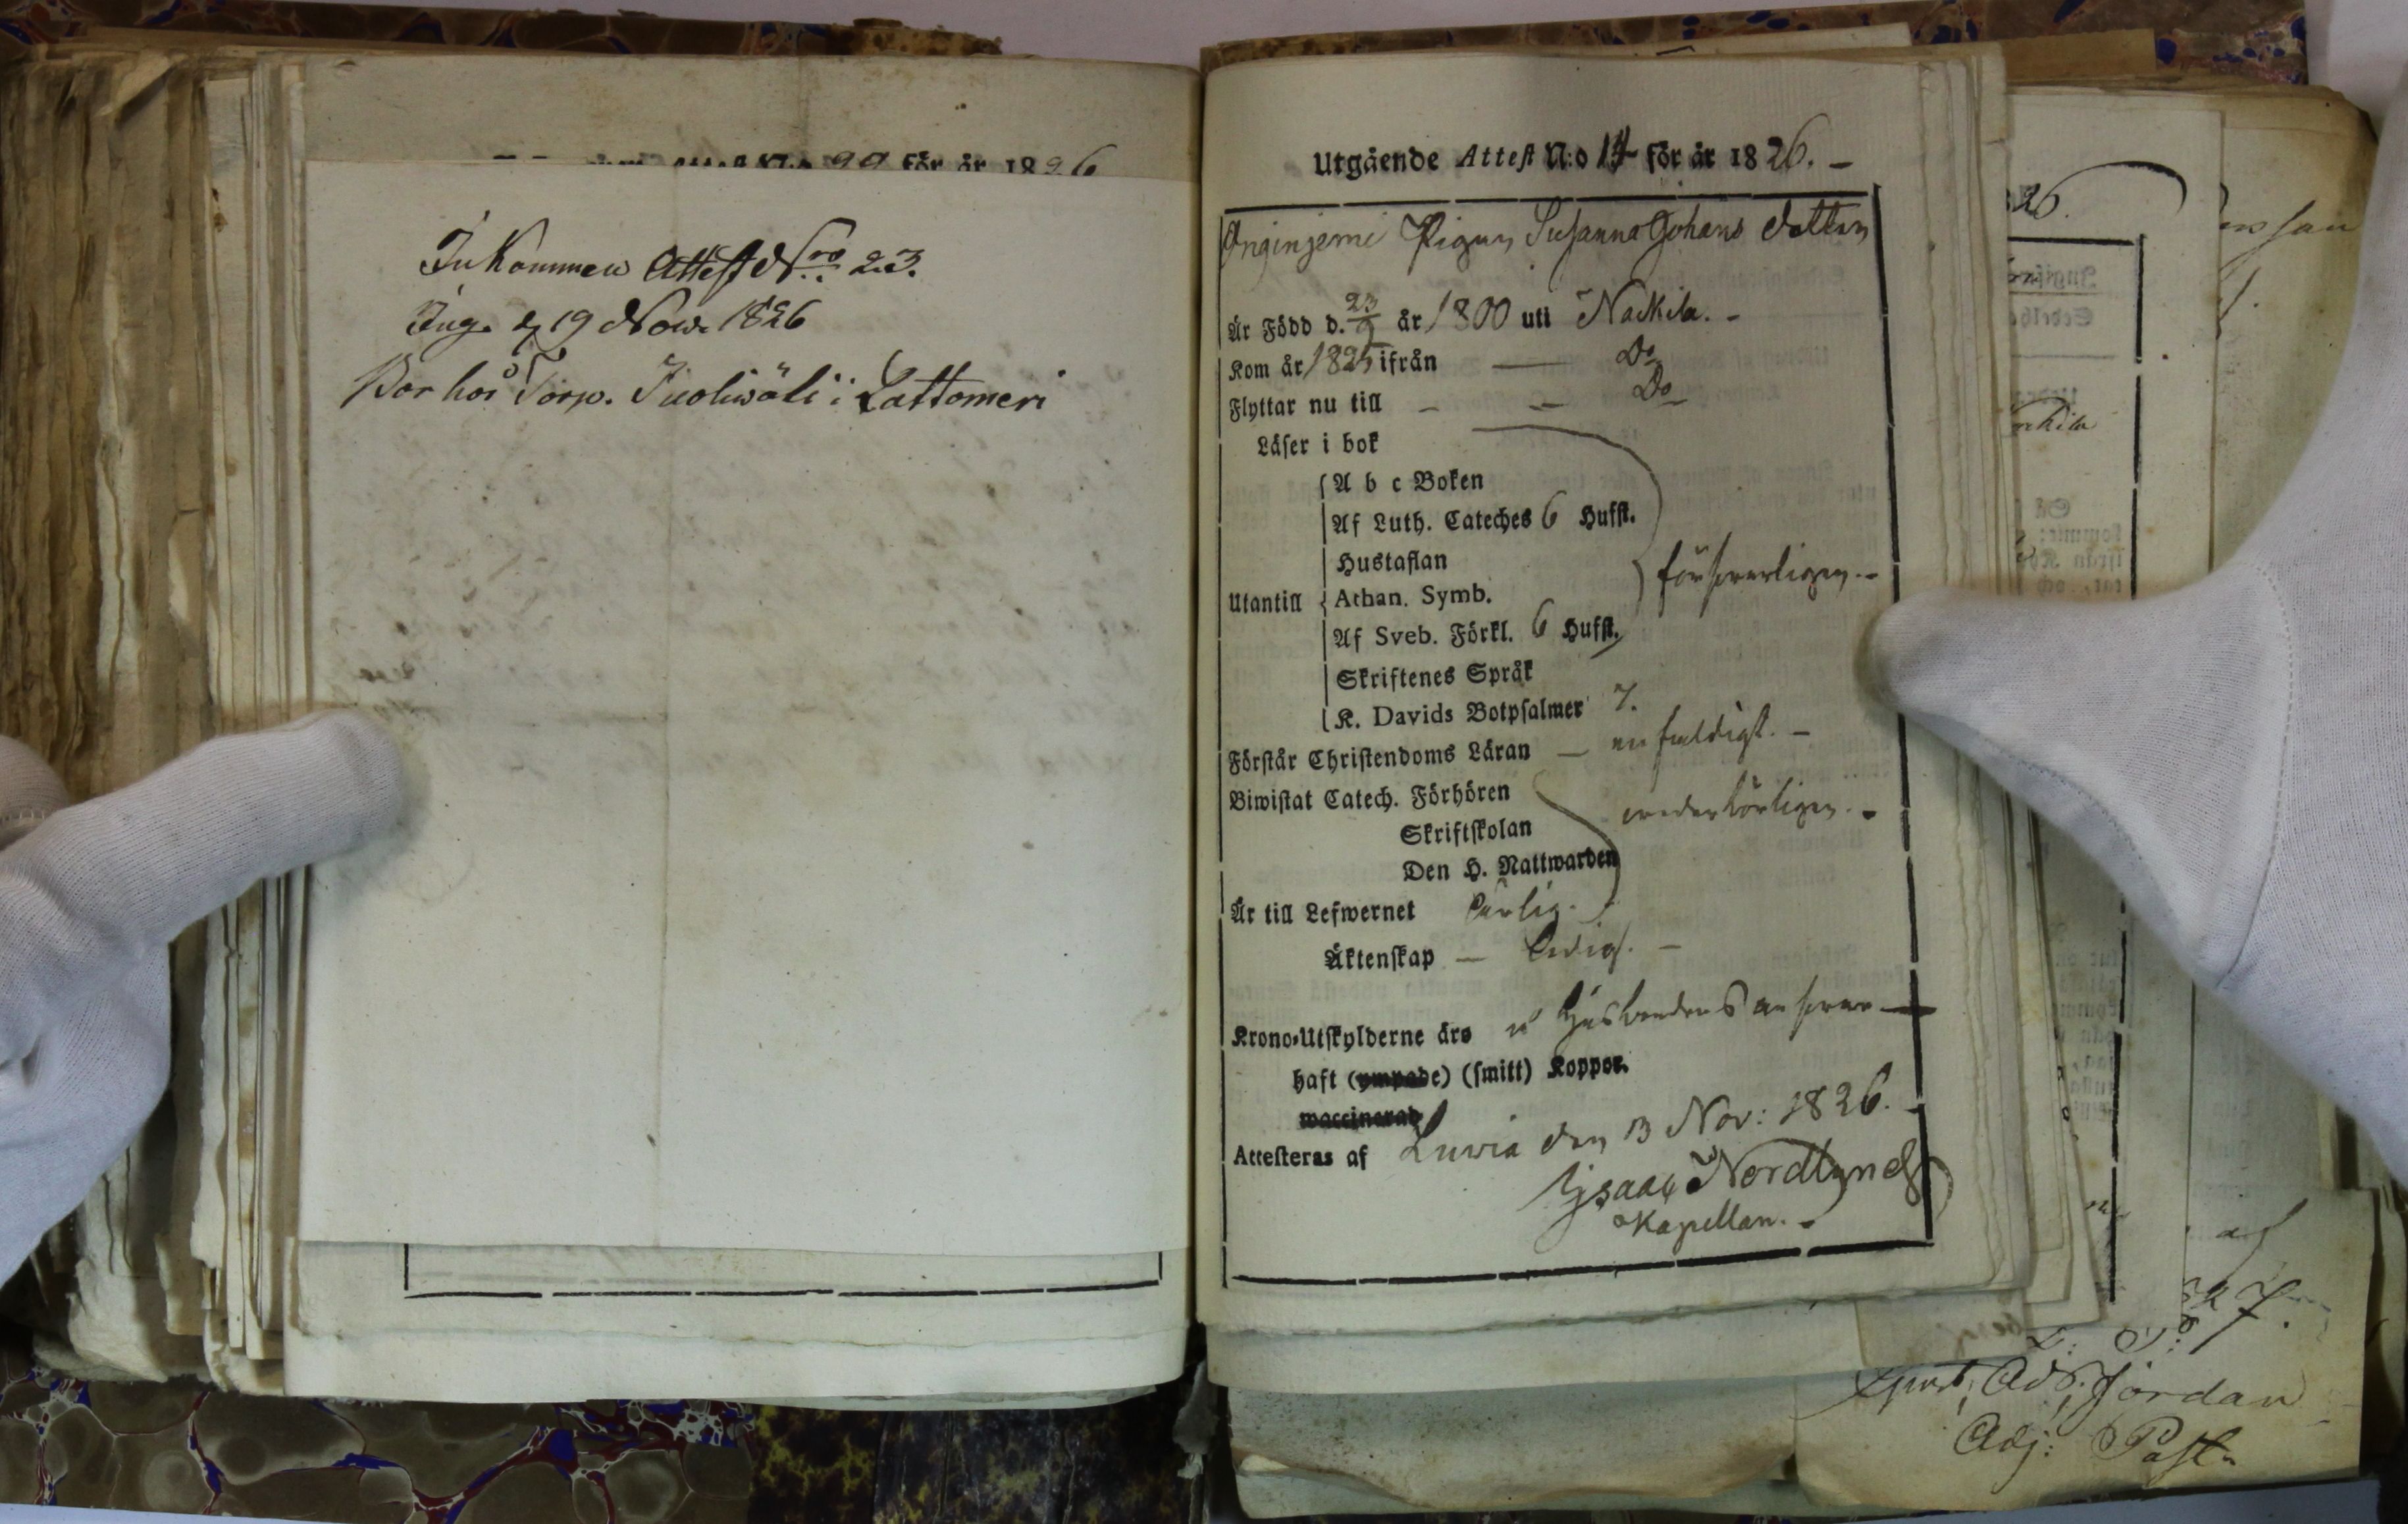 för år 1826
Inkommen Attest Nro 23.
Ing. d 19 Now. 1826
Bor hos Torp. Isoliwäli i Lattomeri
Utgående Attest N:o 14 för år 1826. –
Pigan Susanna Johans dotter
Är Född d. 23/9 år 1800 uti Nackila. –
Kom år 1825 ifrån — Do
Flyttar nu till – – Do
Läser i bok
A b c Boken
Af Luth. Cateches 6 Hufst.
Hustaflan
försvarligen. –
Utantill Athan. Symb.
Af Sveb. Förkl. 6 Hufst.
Skriftenes Språk
K. Davids Botpsalmer 7.
Förstår Christendoms Läran — enfaldigt. –
Biwistat Catech. Förhören
Skriftskolan
Den H. Nattwarden
vederbörligen. –
Är till Lefwernet ärlig.
Äktenskap — Ledig. –
Krono-Utskylderne äro å Husbondens answar
haft (ympade) (smitt) Koppor.
waccinerad
Attesteras af Luvia den 13 Nov: 1826.
Isaac Nordlund
Kapellan. –
26.
Adj. Jordan
Adj: Past.